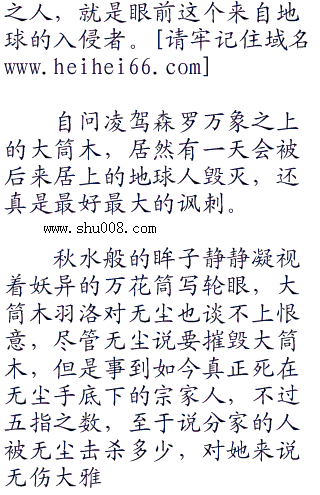 之人，就是眼前这个来自地
球的入侵者。[请牢记住域名
www.heihei66.com]
自问凌驾森罗万象之上
的大筒木，居然有一天会被
后来居上的地球人毁灭，还
真是最好最大的讽刺。
www.shu008.com
秋水般的眸子静静凝视
着妖异的万花筒写轮眼，大
筒木羽洛对无尘也谈不上恨
意，尽管无尘说要摧毁大筒
木，但是事到如今真正死在
无尘手底下的宗家人，不过
五指之数，至于说分家的人
被无尘击杀多少，对她来说
无伤大雅